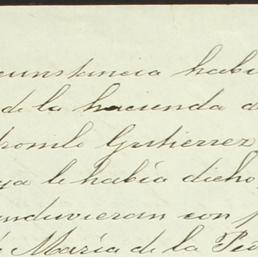 cunstancia habi
de la hacienda d
romulo Gutierrez
ya le había dicho
anduvieran con p
María de la Pie